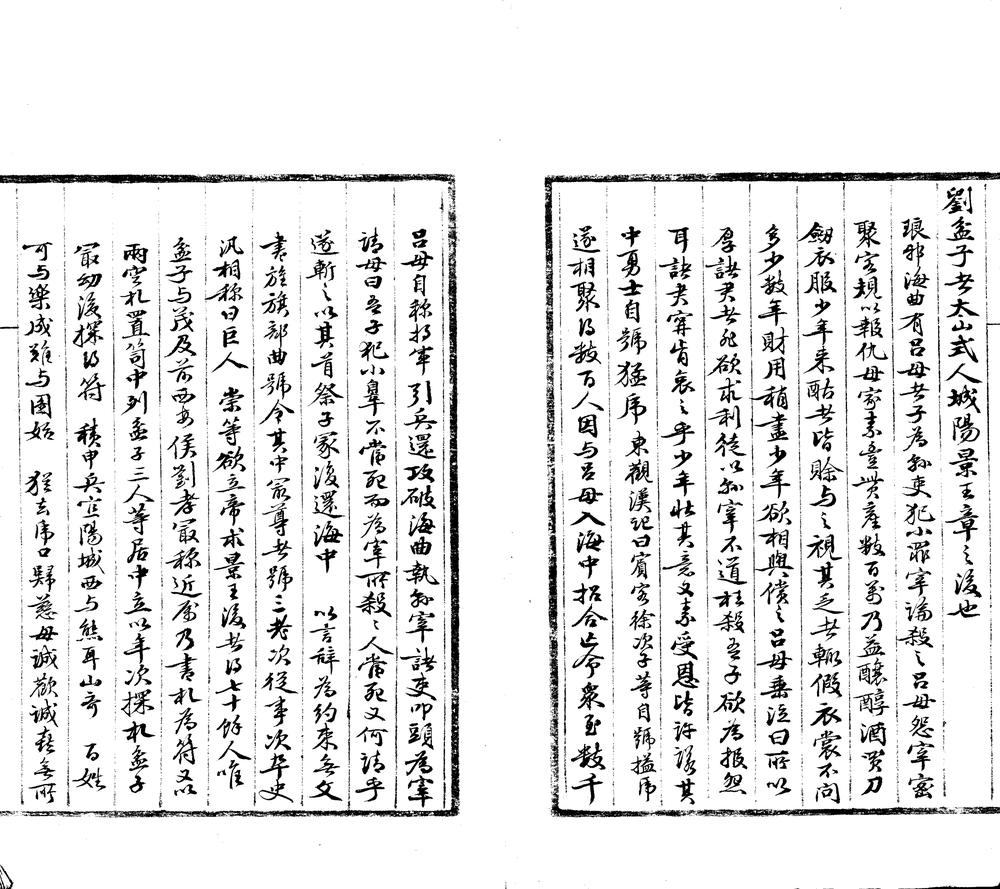 劉盆子者太山式人城陽景王章之後也
琅邪海曲有呂母者子為縣吏犯小罪宰論殺之呂母怨宰密
聚客規以報仇母家素豐貲產數百萬乃益釀醇酒買刀
劍衣服少年來酤者皆賒与之視其乏者輒假衣裳不問
多少數年財用稍盡少年欲相與償之呂母垂泣曰所以
厚諸君者非欲求利徒以縣宰不道枉殺吾子欲為報怨
耳諸君寧肯哀之乎少年壯其意又素受恩皆許諾其
中勇士自號猛虎 東觀漢記曰賓客徐次子等自號搤虎
遂相聚得數百人因与呂母入海中招合亡命眾至數千
呂母自稱將軍引兵還攻破海曲執縣宰諸吏叩頭為宰
請母曰吾子犯小辠不當死而為宰所殺〻人當死又何請乎
遂斬之以其首祭子冢復還海中 以言辭為約束無文
書旌旗部曲號令其中冣尊者號三老次從事次卒史
汎相稱曰巨人 崇等欲立帝求景王後者得七十餘人唯
盆子与茂及前西安侯劉孝冣稱近屬乃書札為符又以
兩空札置笥中列盆子三人等居中立以年次探札盆子
冣幼後探得符 積甲兵宜陽城西与熊耳山齊 百姓
可与樂成難与圖始 猶去虎口歸慈母誠歡誠喜無所